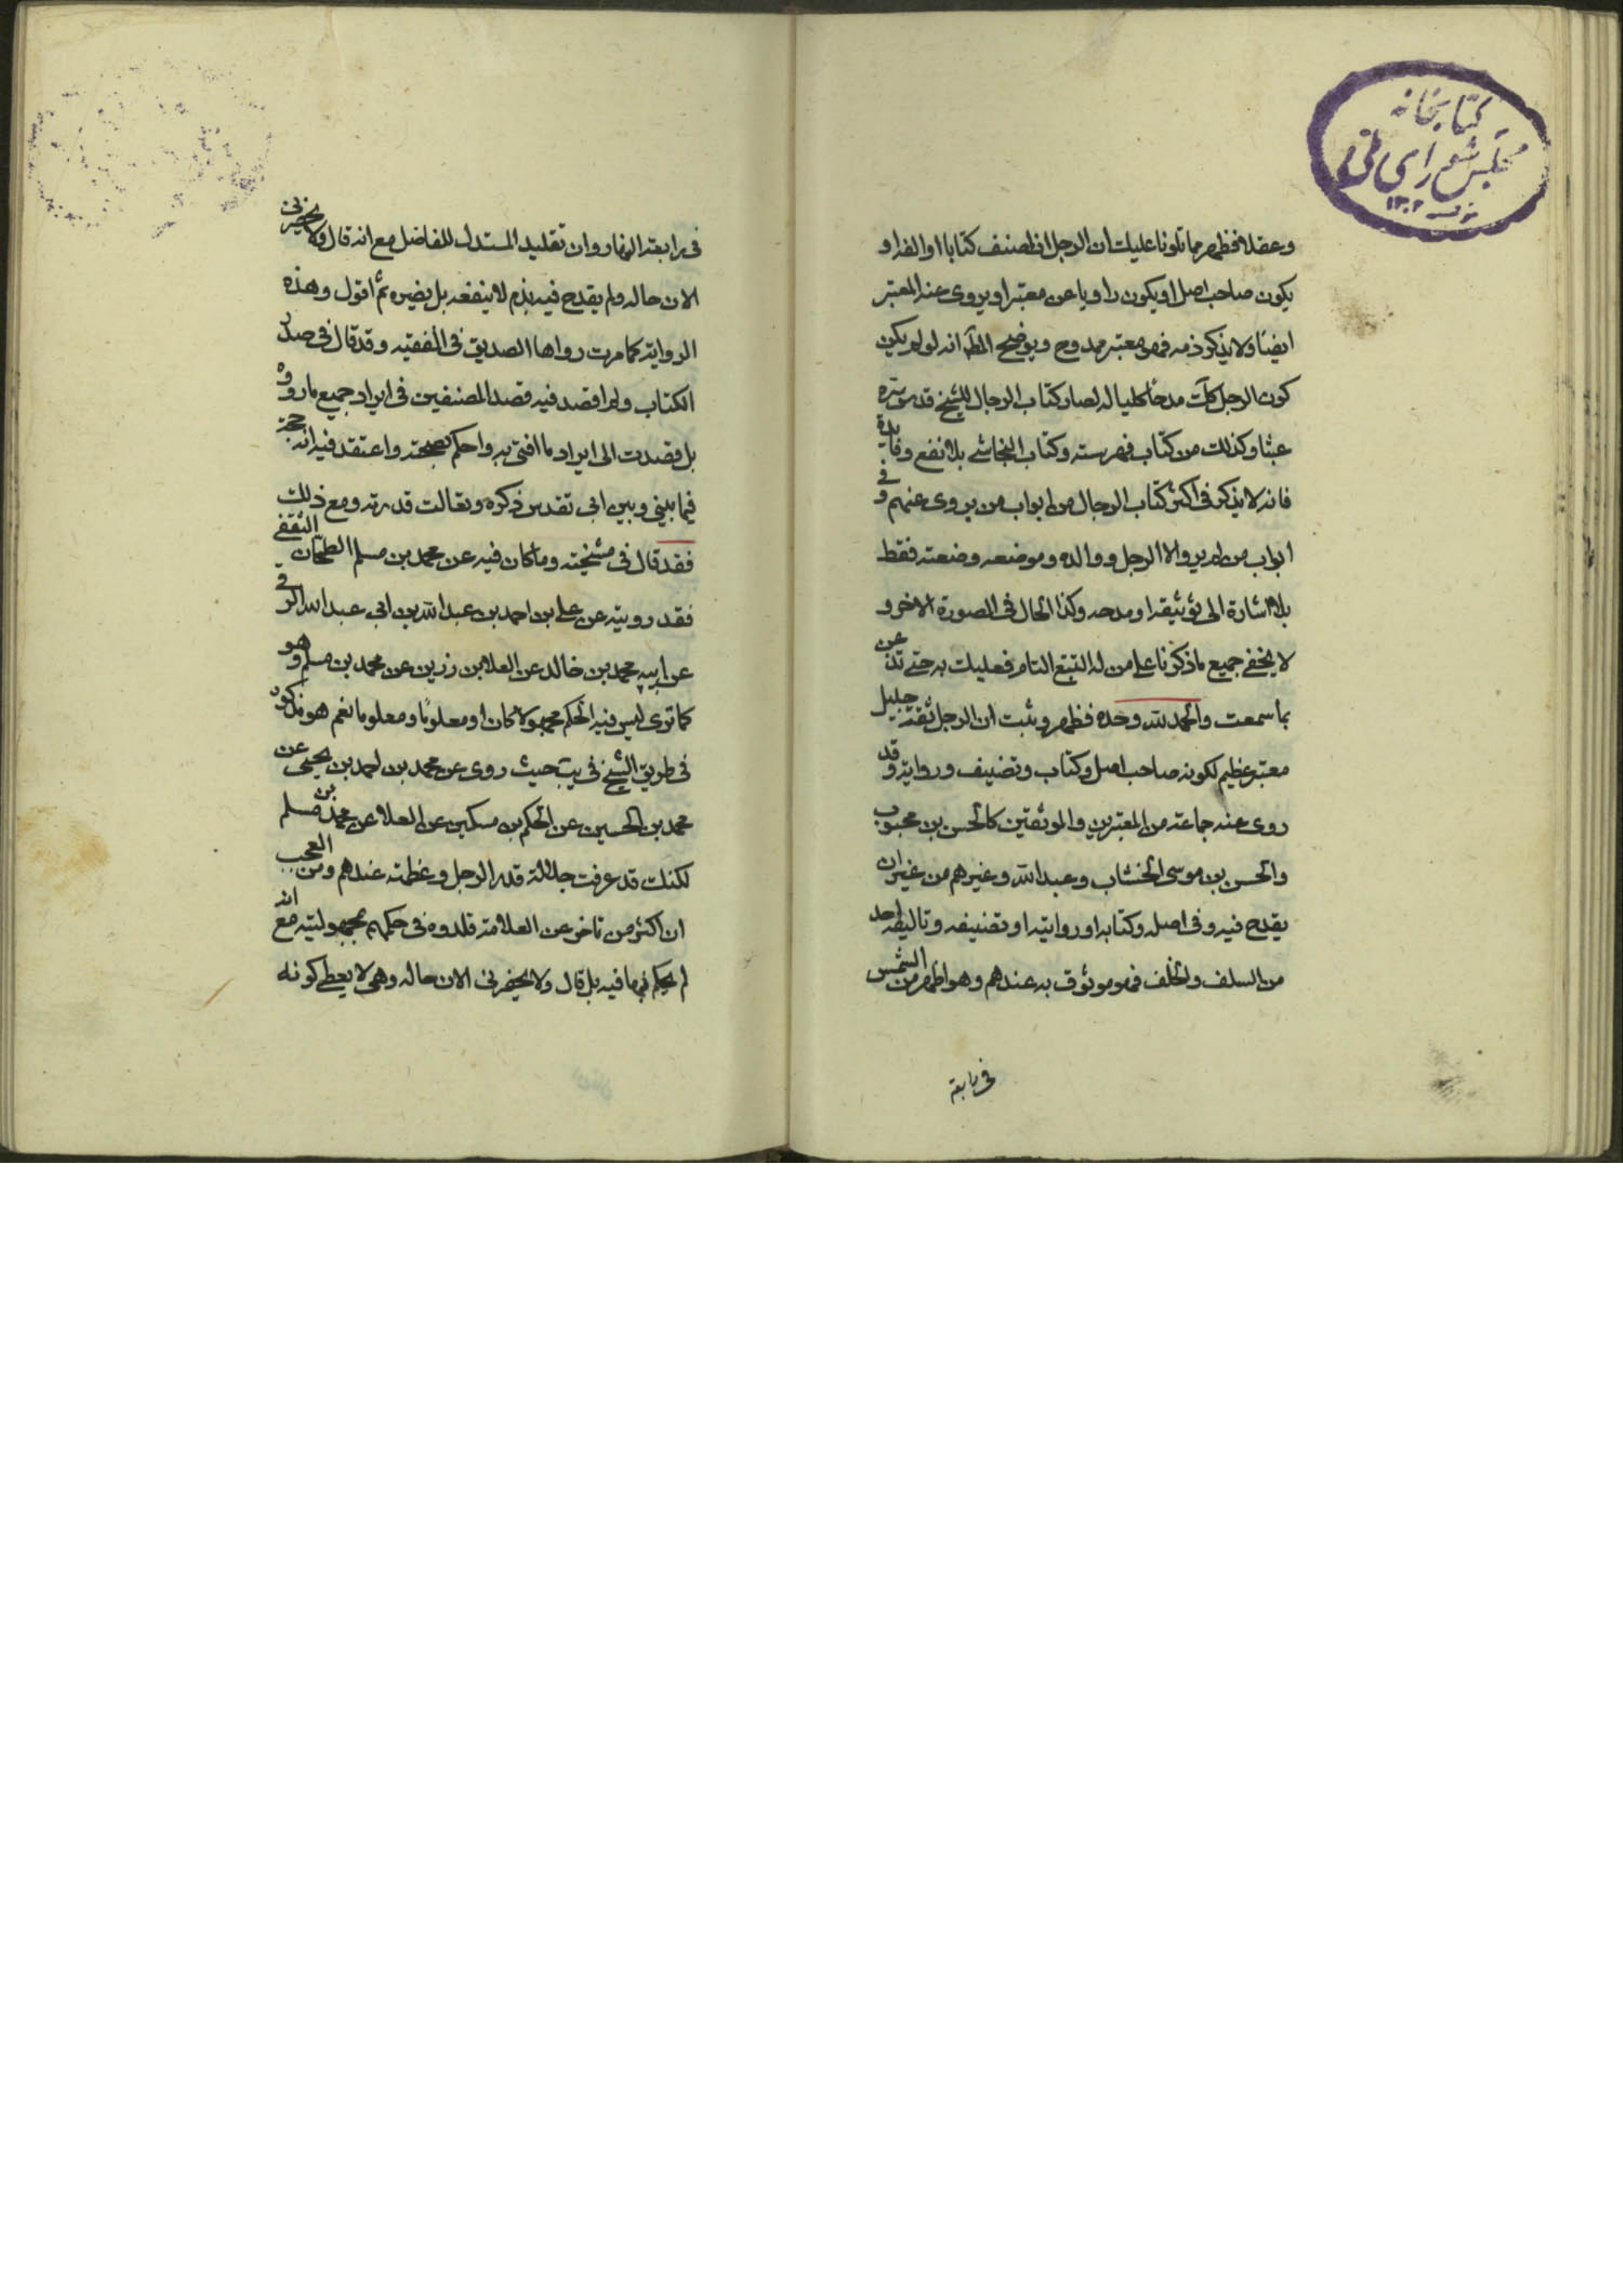 كتابخانه
مجلس شورای ملی
۱۳۰۲
وعقلا فظهر مما تلونا عليك ان الرجل اذا صنف كتابا او الفه او
يكون صاحب اصل او يكون راويا عن معتبر او يروى عنه المعتبر
ايضا ولا يذكر ذمه فهو معتبر ممدوح ويوضح المطلب انه لو لم يكن
كون الرجل كك مدحا جليا له لصار كتاب الرجال للشيخ قدس سره
عبثا وكذلك من كتاب فهرسته وكتاب النجاشي بلا نفع وفايدة
فانه لا يذكر فى اكثر كتاب الرجال من ابواب من يروى عنهم و فى
ابواب من لم يرو الا الرجل ووالده وموضعه وصنعته فقط
بلا اشارة الى توثيقه او مدحه وكذا الحال فى الصورة الاخر و
لا يخفى جميع ما ذكرنا على من له التتبع التام فعليك به حتى تذعن
بما سمعت والحمد لله وحده فظهر وثبت ان الرجل ثقة جليل
معتبر عظيم لكونه صاحب اصل وكتاب وتصنيف ورواية وقد
روى عنه جماعة من المعتبرين والموثقين كالحسن بن محبوب
والحسن بن موسى الخشاب وعبد الله وغيرهم من غير ان
يقدح فيه وفى اصله وكتابه او روايته او تصنيفه وتاليفه احد
من السلف والخلف فهو موثوق به عندهم وهو اظهر من الشمس
فى رابعة
فى رابعة النهار وان تقليد المستدل للفاضل مع انه قال ولا يحضرنى
الان حاله ولم يقدح فيه بذم لا ينفعه بل يضره ثم اقول وهذه
الرواية كما مرت رواها الصديق فى الفقيه وقد قال فى صدر
الكتاب ولم اقصد فيه قصد المصنفين فى ايراد جميع ما رووه
بل قصدت الى ايراد ما افتى به واحكم بصحته واعتقد فيه انه حجة
فيما بينى وبين ربى تقدس ذكره وتعالت قدرته ومع ذلك
فقد قال فى مشيخته وما كان فيه عن محمد بن مسلم الطحان الثقفى
فقد رويته عن على بن احمد بن عبد الله بن ابى عبد الله البرقى
عن ابيه محمد بن خالد عن العلا بن رزين عن محمد بن مسلم وهو
كما ترى ليس فيه الحكم مجهولا كان او معلوما ومعلوما نعم هو مذكور
فى طريق الشيخ فى يب حيث روى عن محمد بن احمد بن يحيى عن
محمد بن الحسين عن الحكم بن مسكين عن العلا عن محمد بن مسلم
لكنك قد عرفت جلالة قدر الرجل وعظمته عندهم ومن العجب
ان اكثر من تاخر عن العلامة قلدوه فى حكمهم بمجهوليته مع انه
لم يحكم بها فيه بل قال ولا يحضرنى الان حاله وهى لا يعطى كونه